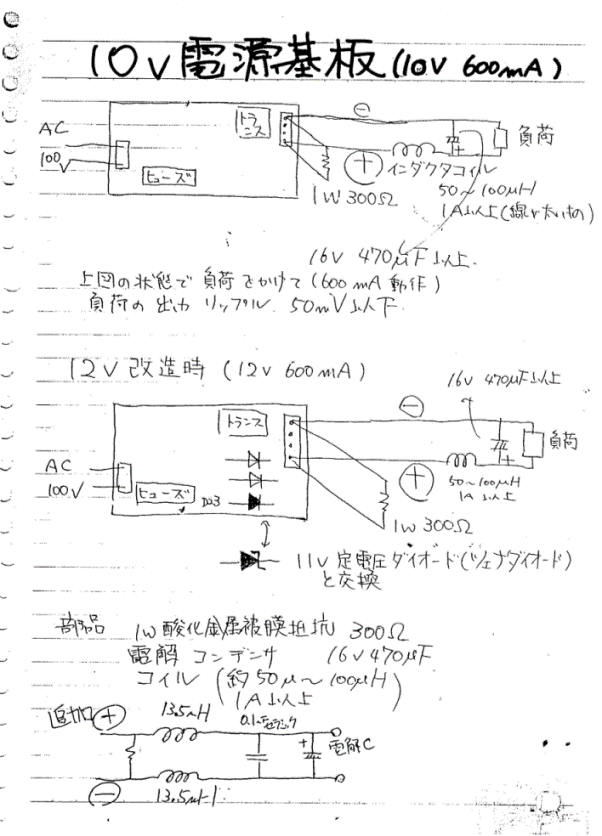 10V電源基板(10V 600mA)
AC
100V
トランス
ヒューズ
⊖
負荷
⊕ インダクタコイル
1W 300Ω
50~100μH
1A以上(線が太いもの)
16V 470μF以上.
上図の状態で負荷をかけて(600mA動作)
負荷の出力リップル 50mV以下.
12V改造時 (12V 600mA)
16V 470μF以上
⊖
トランス
負荷
AC
100V
ヒューズ
D23
⊕
50~100μH
1A以上
1W 300Ω
11V 定電圧ダイオード(ツェナダイオード)
と交換
部品 1W酸化金属被膜抵抗 300Ω
電解コンデンサ 16V470μF
コイル (約50μ~100μH)
1A以上
追加 ⊕
13.5μH
0.1
電解C
+
⊖
13.5μH